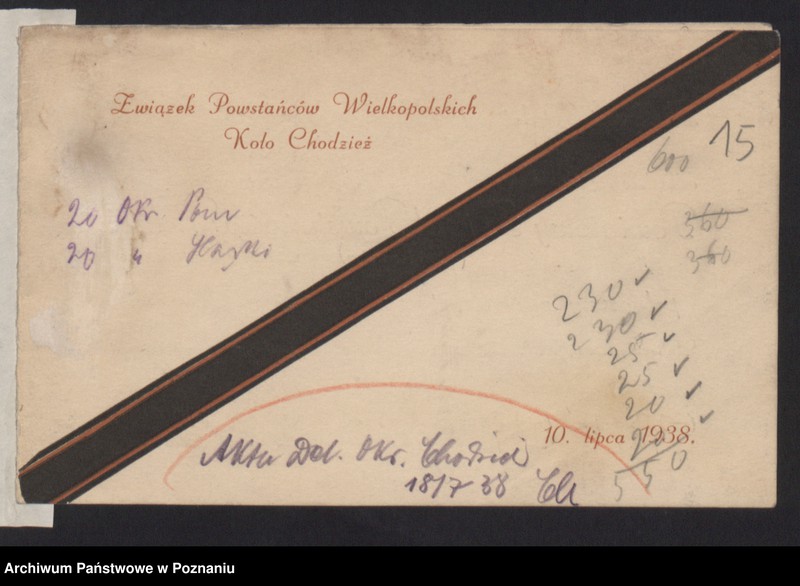 Związek Powstańców Wielkopolskich
Koło Chodzież
15
600
20 Okr. Pom
360
20 " Śląski
360
230 ✓
230 ✓
25 ✓
25 ✓
20 ✓
10. lipca 1938.
20 ✓
550
Akta Okr.
18/7 38
Archiwum Państwowe w Poznaniu